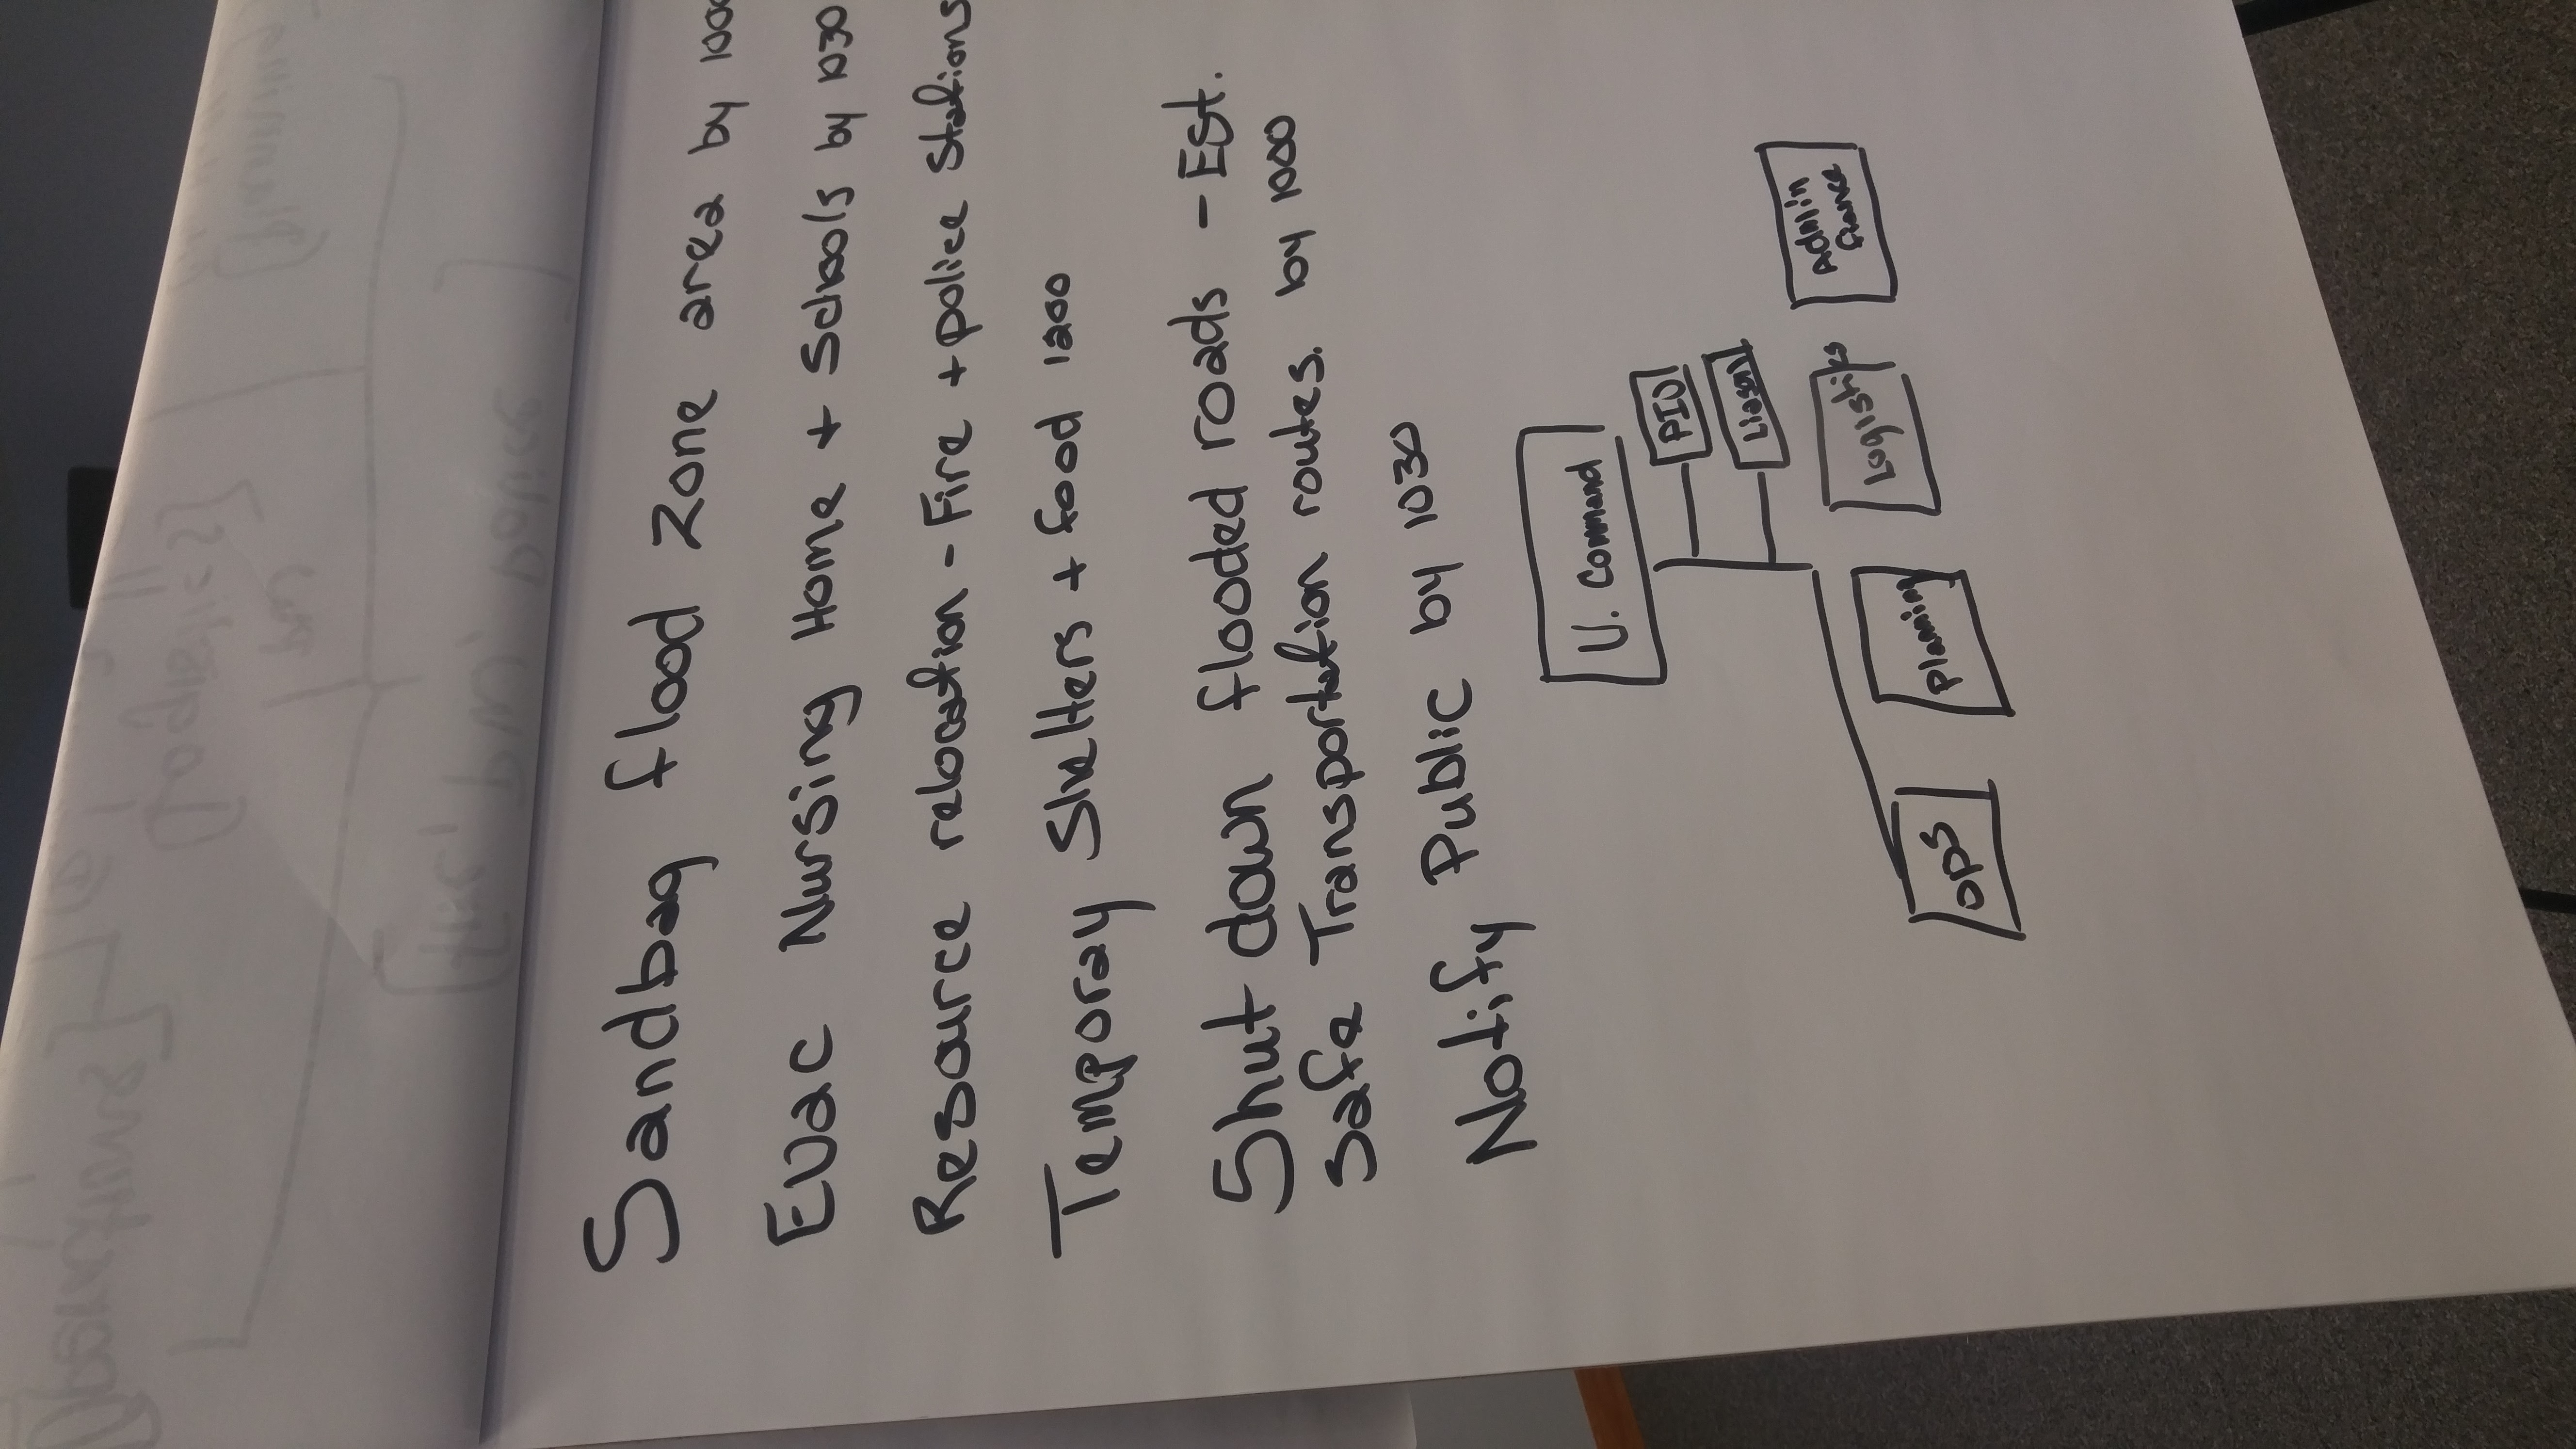 Sandbag flood zone area by 1000
Evac Nursing Home + Schools by 1030
Resource relocation - Fire + police Stations
Temporay Shelters + food 1200
Shut down flooded roads - Est.
Safe Transportation routes. by 1000
Notify Public by 1030
U. Command
PIO
Liason
Ops
Planning
Logistics
Admin
finance